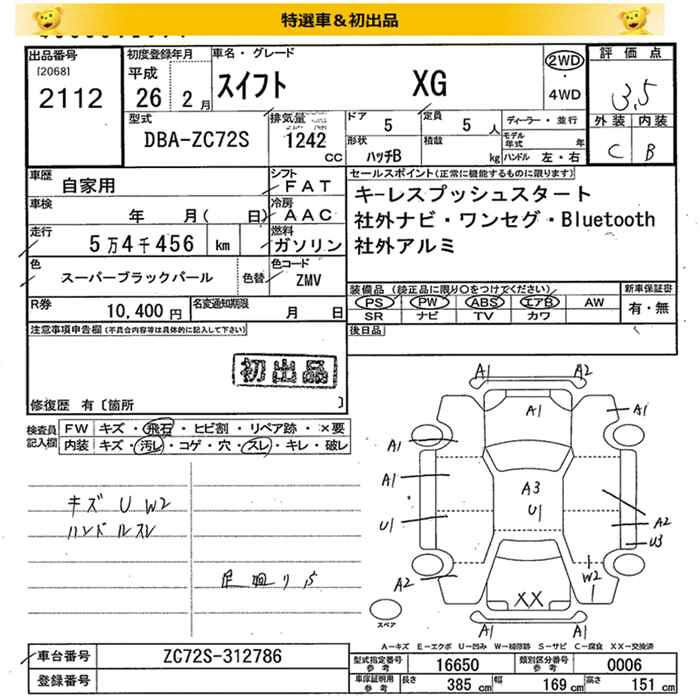 特選車&初出品
出品番号
[2068]
2112
初度登録年月
平成
26 2月
車名・グレード
スイフト XG
2WD
・
4WD
評価点
3.5
外装 内装
C B
型式
DBA-ZC72S
排気量
1242
cc
ドア 5
定員 5 人
形状
ハッチB
積載
kg
ディーラー・並行
モデル
年式 年
ハンドル 左・右
車歴
自家用
シフト
FAT
車検
年 月( 日)
冷房
AAC
走行
5万4千456 km
燃料
ガソリン
色
スーパーブラックパール
色替
色コード
ZMV
R券
10,400円
名変通知期限
月 日
セールスポイント(正常に機能するものに限ります)
キーレスプッシュスタート
社外ナビ・ワンセグ・Bluetooth
社外アルミ
装備品(純正品に限り○をつけてください)
新車保証書
PS PW ABS エアB AW
SR ナビ TV カワ
有・無
後日品
注意事項申告欄(不具合内容等は具体的に記入して下さい)
初出品
修復歴 有〔箇所 〕
検査員
記入欄
FW キズ・飛石・ヒビ割・リペア跡・×要
内装 キズ・汚レ・コゲ・穴・スレ・キレ・破レ
キズ U W2
ハンドルスレ
足廻りサ
A1 A2
A1 A1
A1
A1
A3
U1
U1
A2
U3
A2
W2
XX
A1 A1
スペア
A-キズ E-エクボ U-凹み W-補修跡 S-サビ C-腐食 XX-交換済
車台番号
ZC72S-312786
登録番号
型式指定番号
参考
16650
類別区分番号
参考
0006
車庫証明用
参考
長さ 385 cm
幅 169 cm
高さ 151 cm